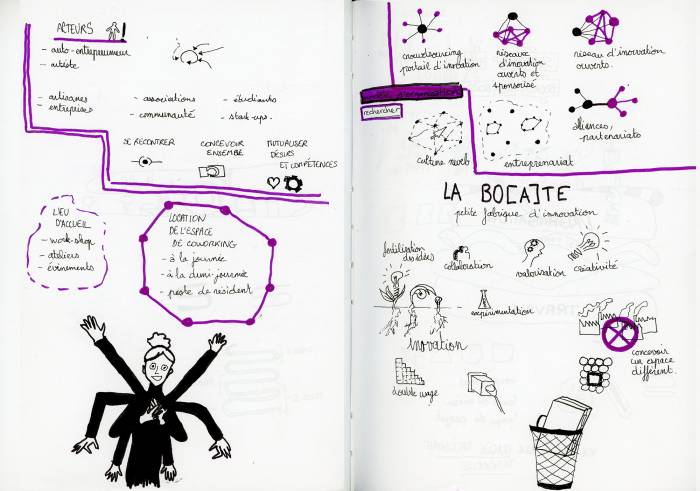 ACTEURS
- auto-entrepreuneur
- artiste
- artisanes
- entreprises
- associations
- communauté
- étudiants
- start-ups.
SE RECONTRER
CONCEVOIR
ENSEMBLE
MUTUALISER
DÉSIRS
ET COMPÉTENCES
LIEU
D'ACCUEIL
- work-shop
- ateliers
- évènements
LOCATION
DE L'ESPACE
DE COWORKING
- à la journée
- à la demi-journée
- poste de résident
crowdsourcing
portail d'inovation
réseaux
d'inovation
ouverts et
sponsorisé
réseau d'inovation
ouverts.
rechercher
culture
entreprenariat
alliences,
partenariats
LA BO[A]TE
petite fabrique d'innovation
fertilisation
des idées
collaboration
valorisation
créativité
expérimentation
inovation
double usage
concevoir
un espace
différent.